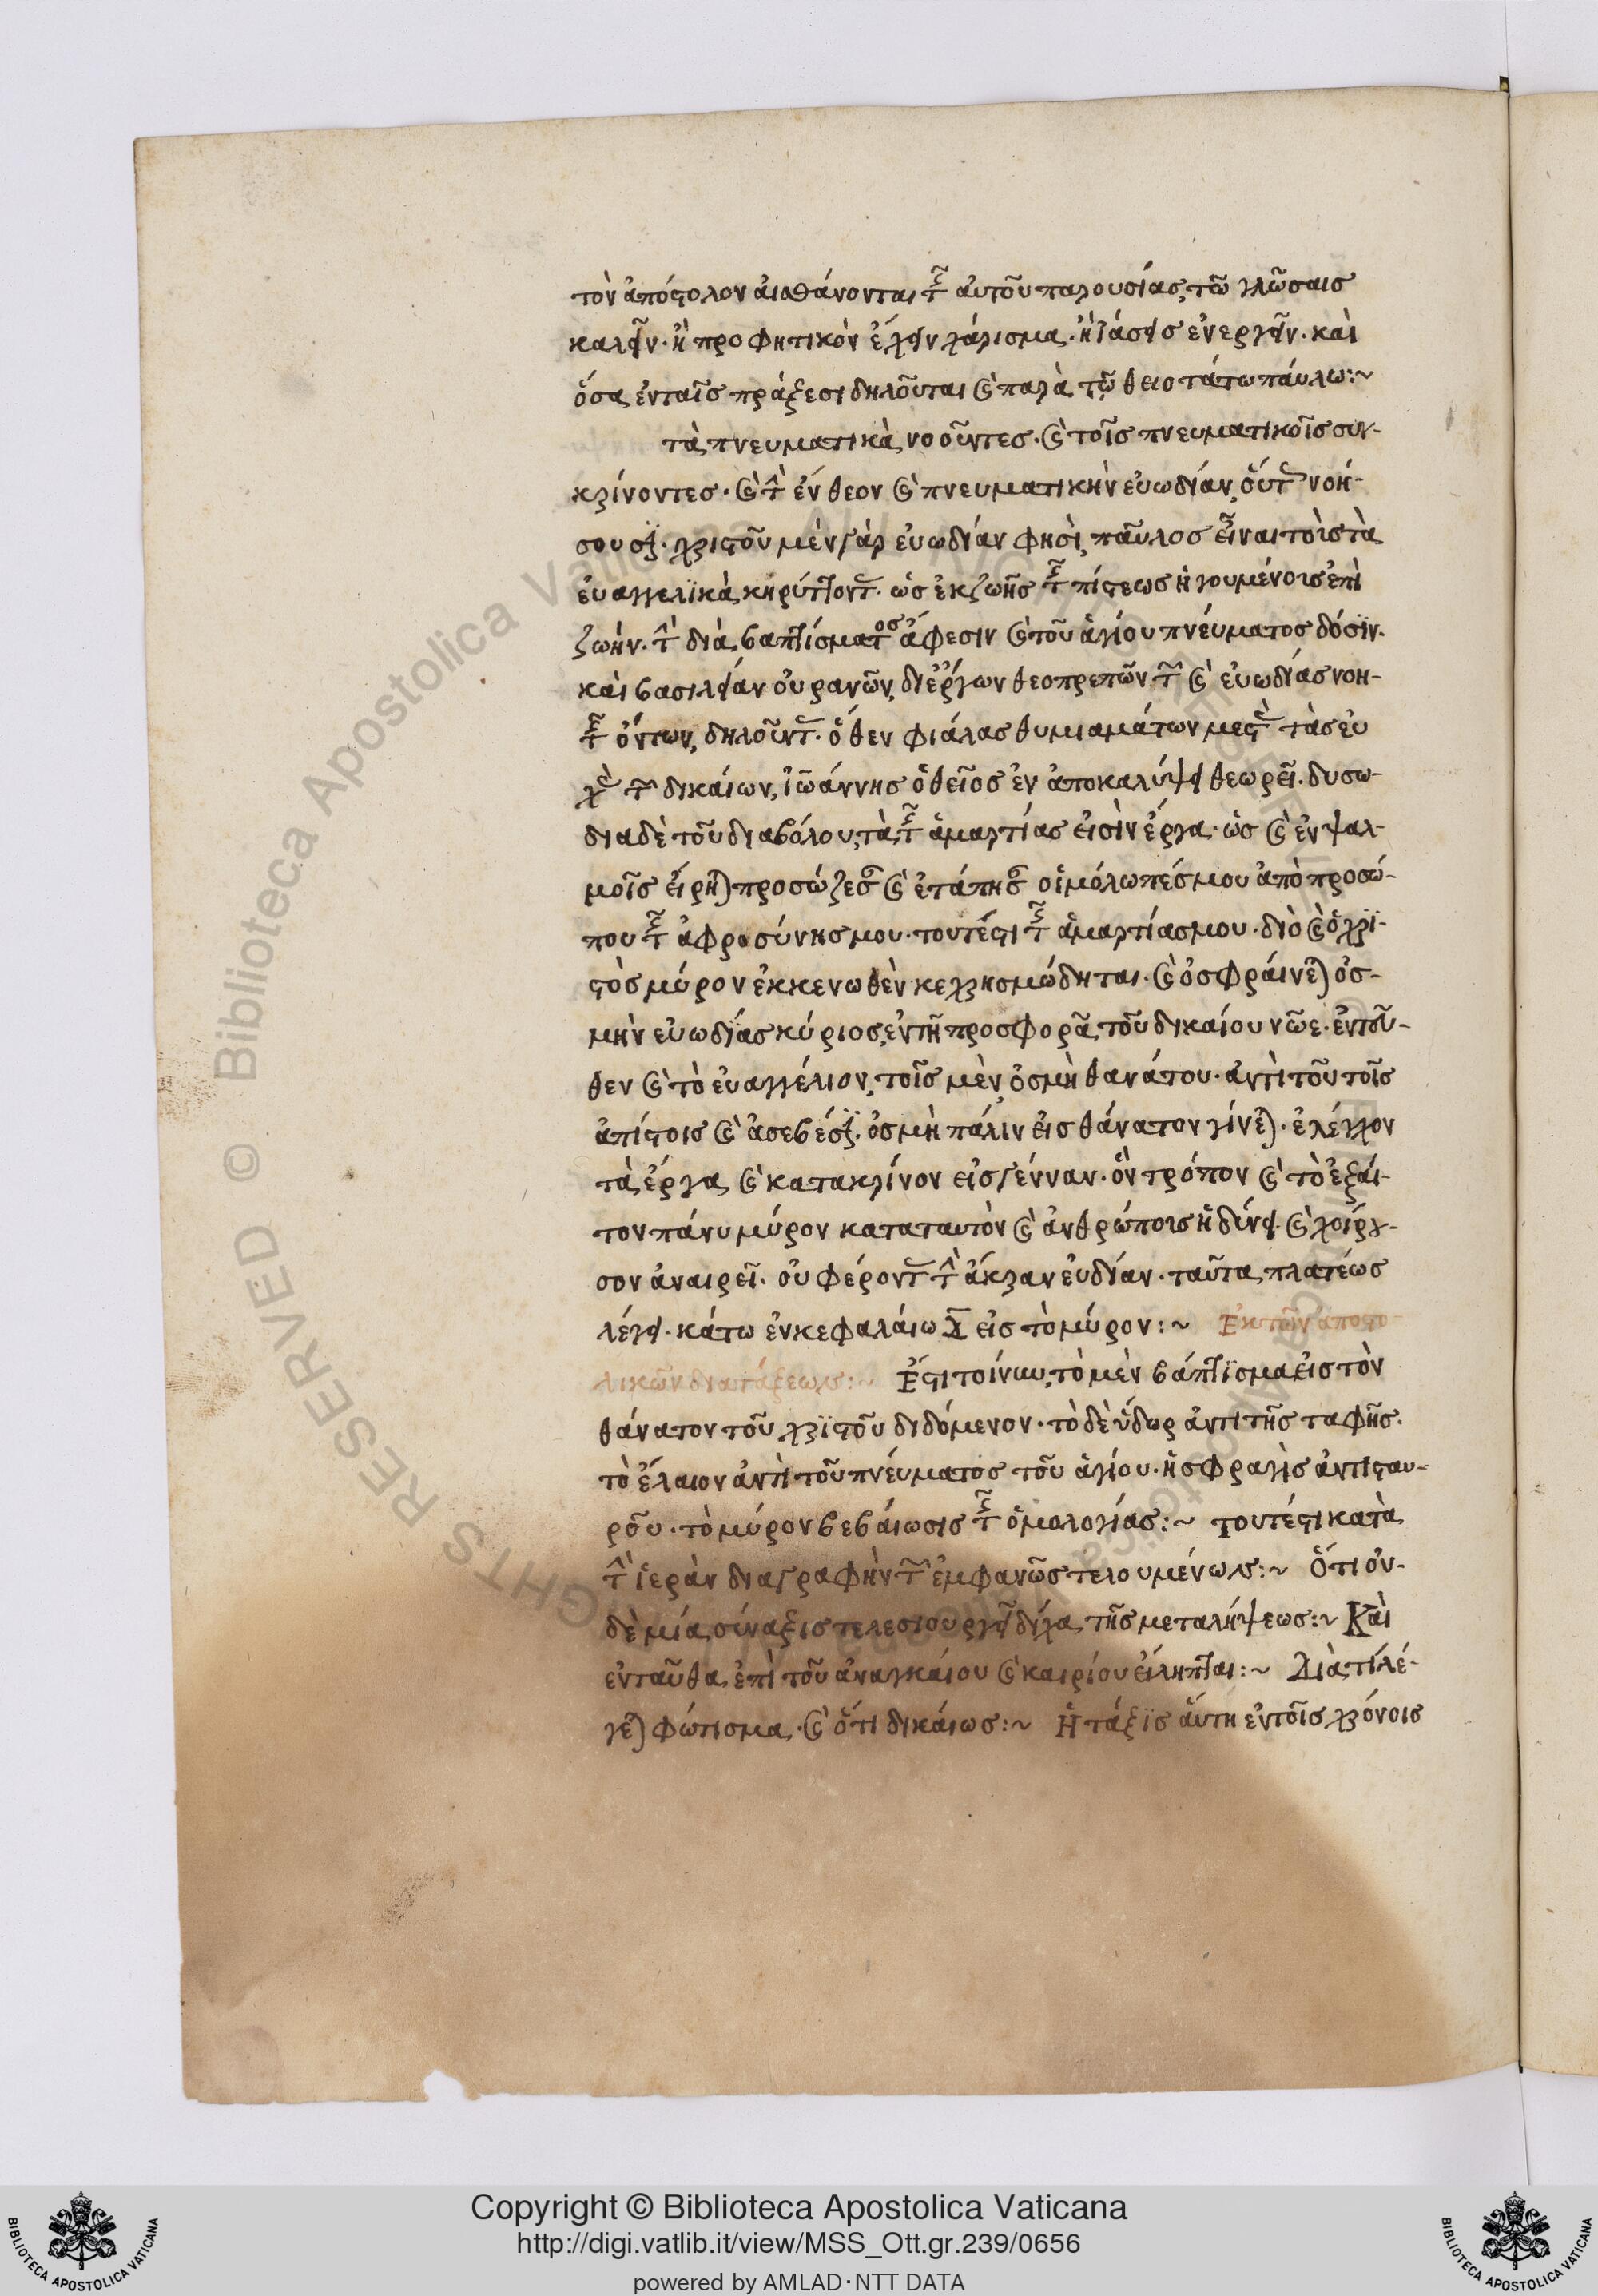 τὸν ἀπόστολον ἀισθάνονται τῆς ἀυτοῦ παρουσίας, τῶ γλῶσαις
καλεῖν· ἢ προφητικὸν ἔχειν χάρισμα· ἢ ἰάσεις ἐνεργεῖν· καὶ
ὅσα ἐν ταῖς πράξεσι δηλοῦται καὶ παρὰ τῶ θειοτάτω πάυλω:~
τὰ πνευματικὰ νοοῦντες· καὶ τοῖς πνευματικοῖς συγ-
κρίνοντες· καὶ τὴν ἔνθεον καὶ πνευματικὴν ἐυωδίαν, ὅυτως νοή-
σουσι· χριστοῦ μὲν γὰρ ἐυωδίαν φησὶ παῦλος εἶναι τοὶς τὰ
ἐυαγγελϊκὰ κηρύττοντας· ὡς ἐκ ζωῆς τῆς πίστεως ἡγουμένοις ἐπὶ
ζωὴν· τὴν διὰ βαπτίσματος ἄφεσιν καὶ τοῦ ἁγίου πνέυματος δόσϊν·
καὶ βασιλείαν ὀυρανῶν, δι ἔργων θεοπρεπῶν τῶν καὶ ἐυωδίας νοη-
τῆς ὄντων, δηλοῦντας· ὅθεν φιάλας θυμιαμάτων μεστὰς τὰς ἐυ
χὰς τῶν δικάιων, ἰωάννης ὁ θεῖος ἐν ἀποκαλύψει θεωρεῖ· δυσω-
δια δὲ τοῦ διαβόλου, τὰ τῆς ἁμαρτίας ἐισὶν ἔργα· ὡς καὶ ἐν ψαλ-
μοῖς ἔιρηται προσώζεσαν καὶ ἐσάπησαν οἱ μόλωπές μου ἀπὸ προσώ-
που τῆς ἀφροσύνης μου· τουτέστι τῆς ἁμαρτίας μου· διὸ καὶ ὁ χρϊ-
στὸς μύρον ἐκκενωθὲν κεχρησμώδηται· καὶ ὀσφράινεται ὀσ-
μὴν ἐυωδίας κύριος, ἐν τῆ προσφορᾶ τοῦ δικαίου νῶε· ἐντοῦ-
θεν καὶ τὸ ἐυαγγέλιον, τοῖς μὲν ὀσμὴ θανάτου· ἀντὶ τοῦ τοῖς
ἀπίστοις καὶ ἀσεβέσϊ· ὀσμὴ πάλιν ἐις θάνατον γίνεται· ἐλέγχον
τὰ ἔργα καὶ κατακρίνον ἐις γέενναν· ὃν τρόπον καὶ τὸ ἐξάι-
τον πάνυ μύρον κατα ταυτὸν καὶ ἀνθρώποις ἡδύνει καὶ χοίρει-
σον ἀναιρεῖ· ὀυ φέροντας τὴν ἄκραν ἐυδίαν· ταῦτα πλατέως
λέγει· κάτω ἐν κεφαλάιω χ ἐις τὸ μύρον:~ Ἐκ τῶν ἀποστο-
λικῶν διατάξεων:~ Ἔστι τοίνυν, τὸ μὲν βάπτϊσμα ἐις τὸν
θάνατον τοῦ χρϊστοῦ διδόμενον· τὸ δὲ ὕδωρ ἀντὶ τῆς ταφῆς·
τὸ ἔλαιον ἀντὶ τοῦ πνέυματος τοῦ ἁγίου· ἡ σφραγὶς ἀντὶ σταυ-
ροῦ· τὸ μύρον βεβάιωσις τῆς ὁμολογίας:~ τουτέστι κατὰ
τὴν ἱερὰν διαγραφὴν τῶν ἐμφανῶς τελουμένων:~ Ὅτι ὀυ-
δὲ μία σύναξις τελεσιουργεῖ δίχα τῆς μεταλήψεως:~ Καὶ
ἐνταῦθα ἐπὶ τοῦ ἀναγκάιου καὶ καιρίου ἔιληπται:~ Διὰ τί λέ-
γεται φώτισμα· καὶ ὅτι δικάιως:~ Ἡ τάξϊς ἅυτη ἐν τοῖς χρόνοις
Copyright © Biblioteca Apostolica Vaticana
http://digi.vatlib.it/view/MSS_Ott.gr.239/0656
powered by AMLAD·NTT DATA